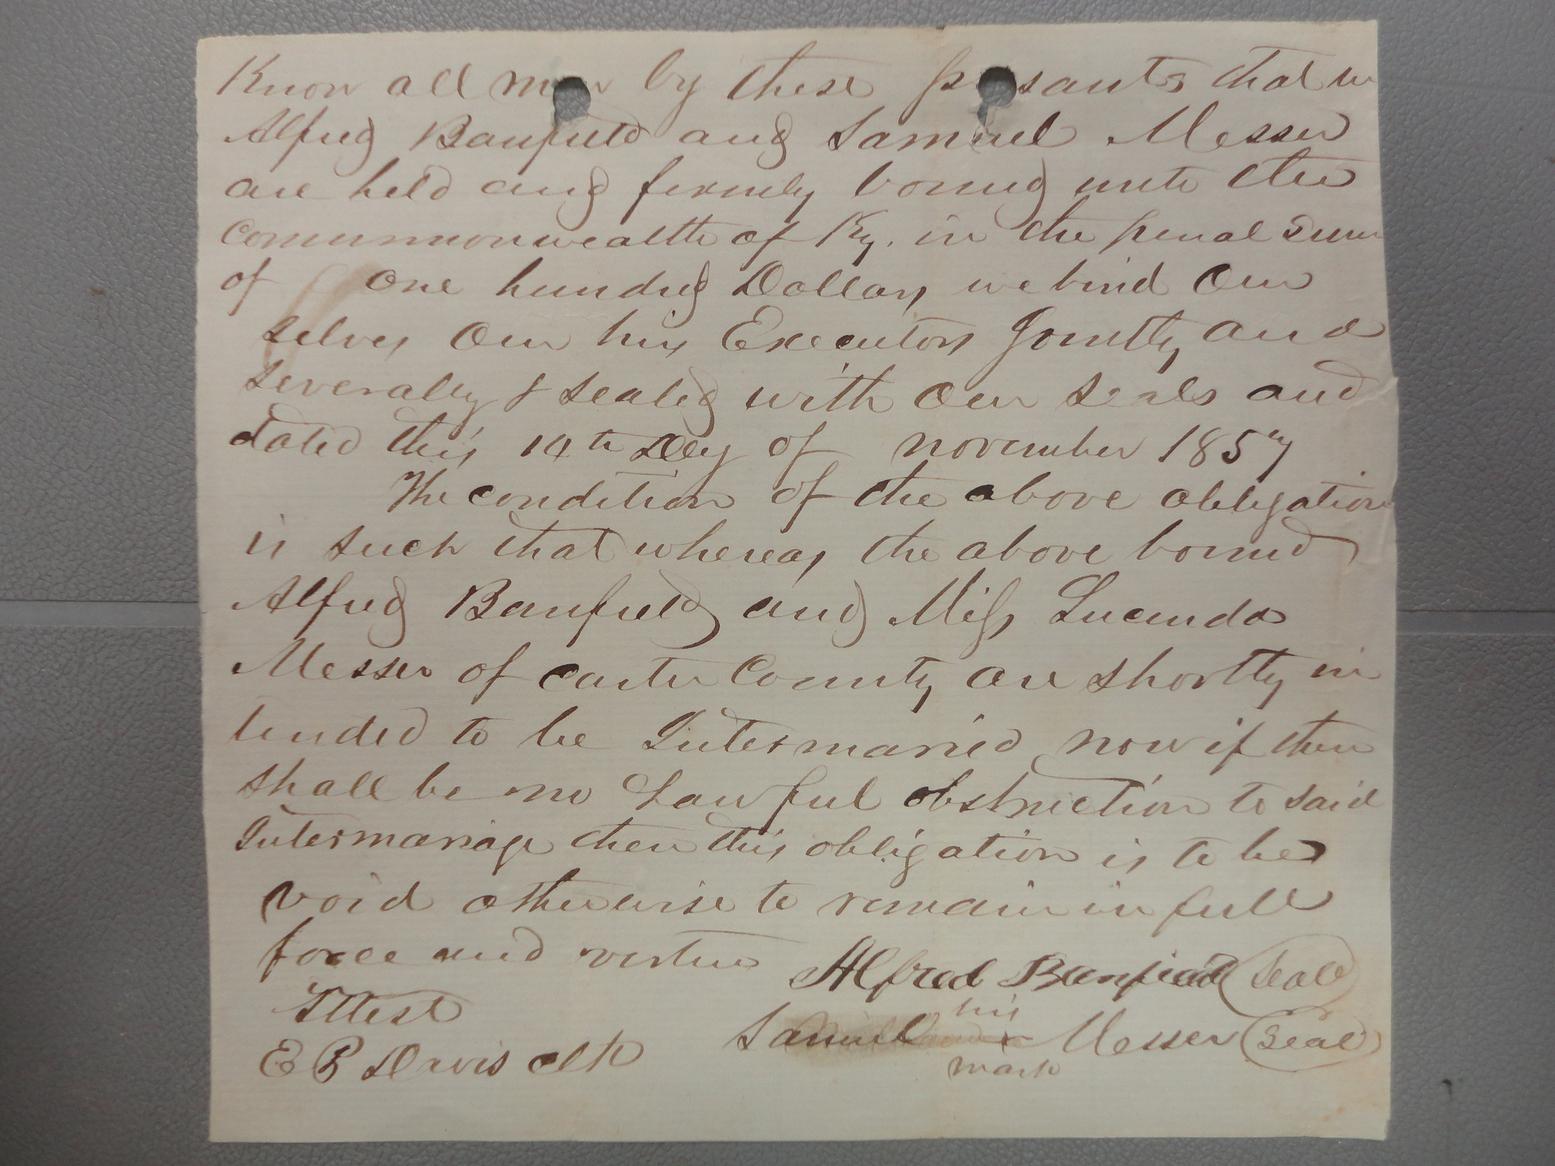 Know all men by these presants that we
Alfred Banfield and Samuel Messer
are held and firmly bound unto the
Commonwealth of Ky. in the penal sum
of one hundred Dollars we bind Our
selves Our his Executors Jointly and
severaly & sealed with Our seals and
dated this 14th Day of november 1857
The condition of the above obligation
is such that whereas the above bound
Alfred Banfield and Miss Lucinda
Messer of carter County are shortly in
tended to be Intermarried now if there
shall be no Lawful obstruction to said
Intermariage then this obligation is to be
void otherwise to remain in full
force and virtue
Alfred Banfield (Seal)
Attest
his
Samuel x Messer (Seal)
mark
E B Davis clk